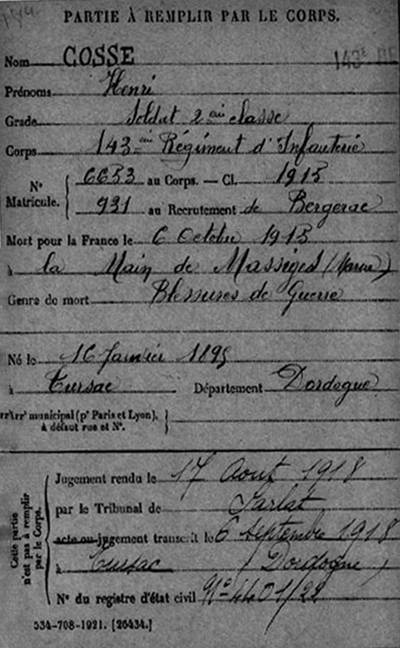 PARTIE À REMPLIR PAR LE CORPS.
143E
Nom COSSE
Prénoms Henri
Grade Soldat 2e classe
Corps 143e Régiment d'Infanterie
N° Matricule. 6653 au Corps. — Cl. 1915
931 au Recrutement de Bergerac
Mort pour la France le 6 Octobre 1915
à la Main de Massiges (Marne)
Genre de mort Blessures de Guerre
Né le 16 Janvier 1895
à Tursac Département Dordogne
arrt municipal (pr Paris et Lyon), à défaut rue et N°.
Cette partie n'est pas à remplir par le Corps.
Jugement rendu le 17 Août 1918
par le Tribunal de Sarlat
acte ou jugement transcrit le 6 septembre 1918
à Tursac (Dordogne)
N° du registre d'état civil N° 4401/22
534-708-1921. [26434.]